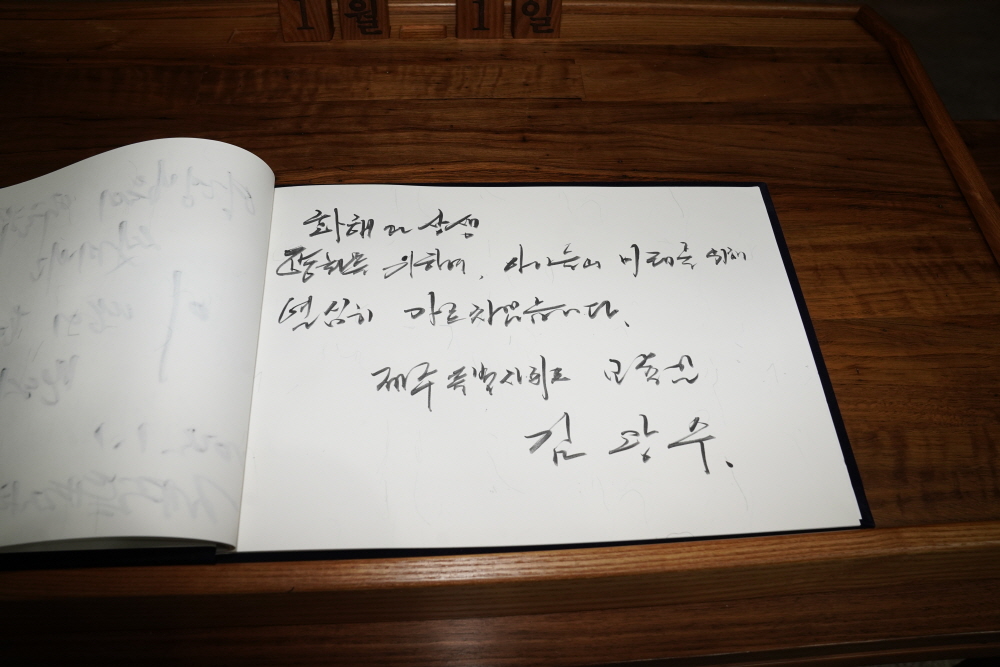 1월 1일
화해과 상생
위하여, 아이들의 미래를 위해
열심히 가르치겠습니다.
제주특별자치도 교육감
김광수.